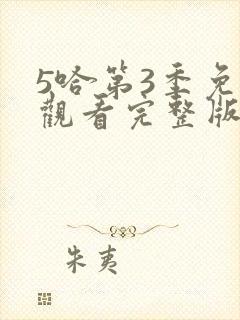 5哈第3季免
觀看完整版
朱夷